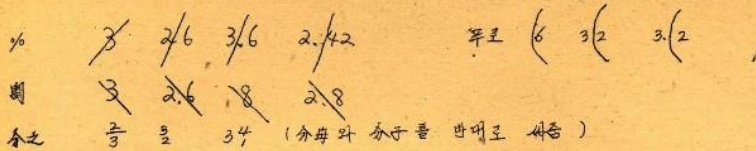 % 3/ 2/6 3/.6 2./42 부로 (6 3(2 3.(2
割 3\ 2.\6 \8 2.\8
分之 2/3 3/2 3 4/1 (分母와 分子를 반대로 써줌)